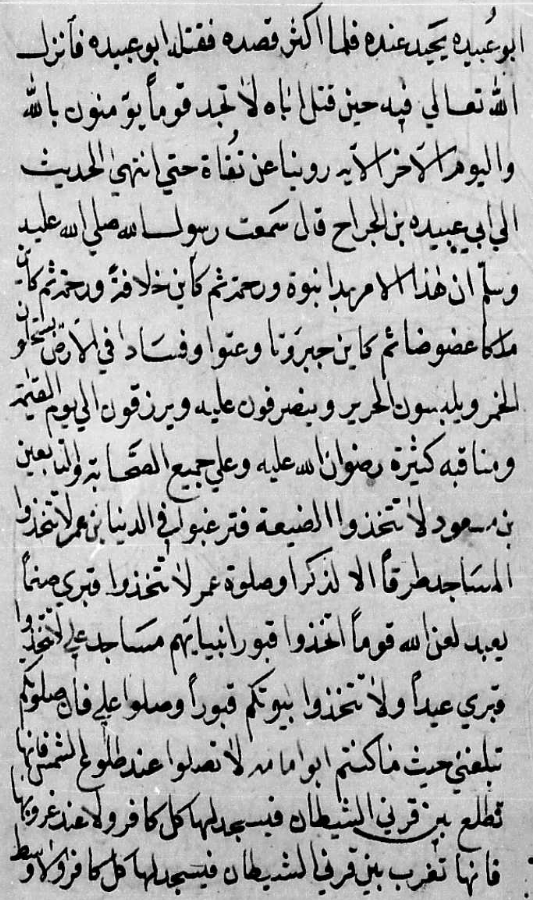 ابو عُبيده يحيد عنده فلما اكثر قصده فقتله ابو عبيده فانزل
الله تعالي فيه حين قتل اباه لا تجد قوماً يؤمنون بالله
واليوم الاخر الآيه روينا عن ثقاة حتي انتهي الحديث
الي ابي عبيده بن الجراح قال سَمعت رسول الله صلي الله عليه
وسلم ان هذا الامر بدا نبوة ورحمة ثم كاين خلافة ورحمة ثم كاين
ملكا عضوضا ثم كاين جبروتا وعتوا وفسادا في الارض يستحلون
الخمر ويلبسون الحرير وينصرفون عليه ويرزقون الي يوم القيمة
ومناقبه كثيرة رضوان الله عليه وعلي جميع الصحابة والتابعين
بن مسعود لا تتخذوا الضيعة فترغبوا في الدنيا بن عمر لا تتخذوا
المساجد طرقاً الا لذكر او صلوة عمر لا تتخذوا قبري صنماً
يعبد لعن الله قوماً اتخذوا قبور انبيايهم مساجد علي لا تتخذوا
قبري عيداً ولا تتخذوا بيوتكم قبوراً وصلوا علي فان صلوتكم
تبلغني حيث ما كنتم ابو امامه لا تصلوا عند طلوع الشمس فانها
تطلع بين قرني الشيطان فيسجد لها كل كافر ولا عند غروبها
فانها تغرب بين قرني الشيطان فيسجد لها كل كافر ولا وسط